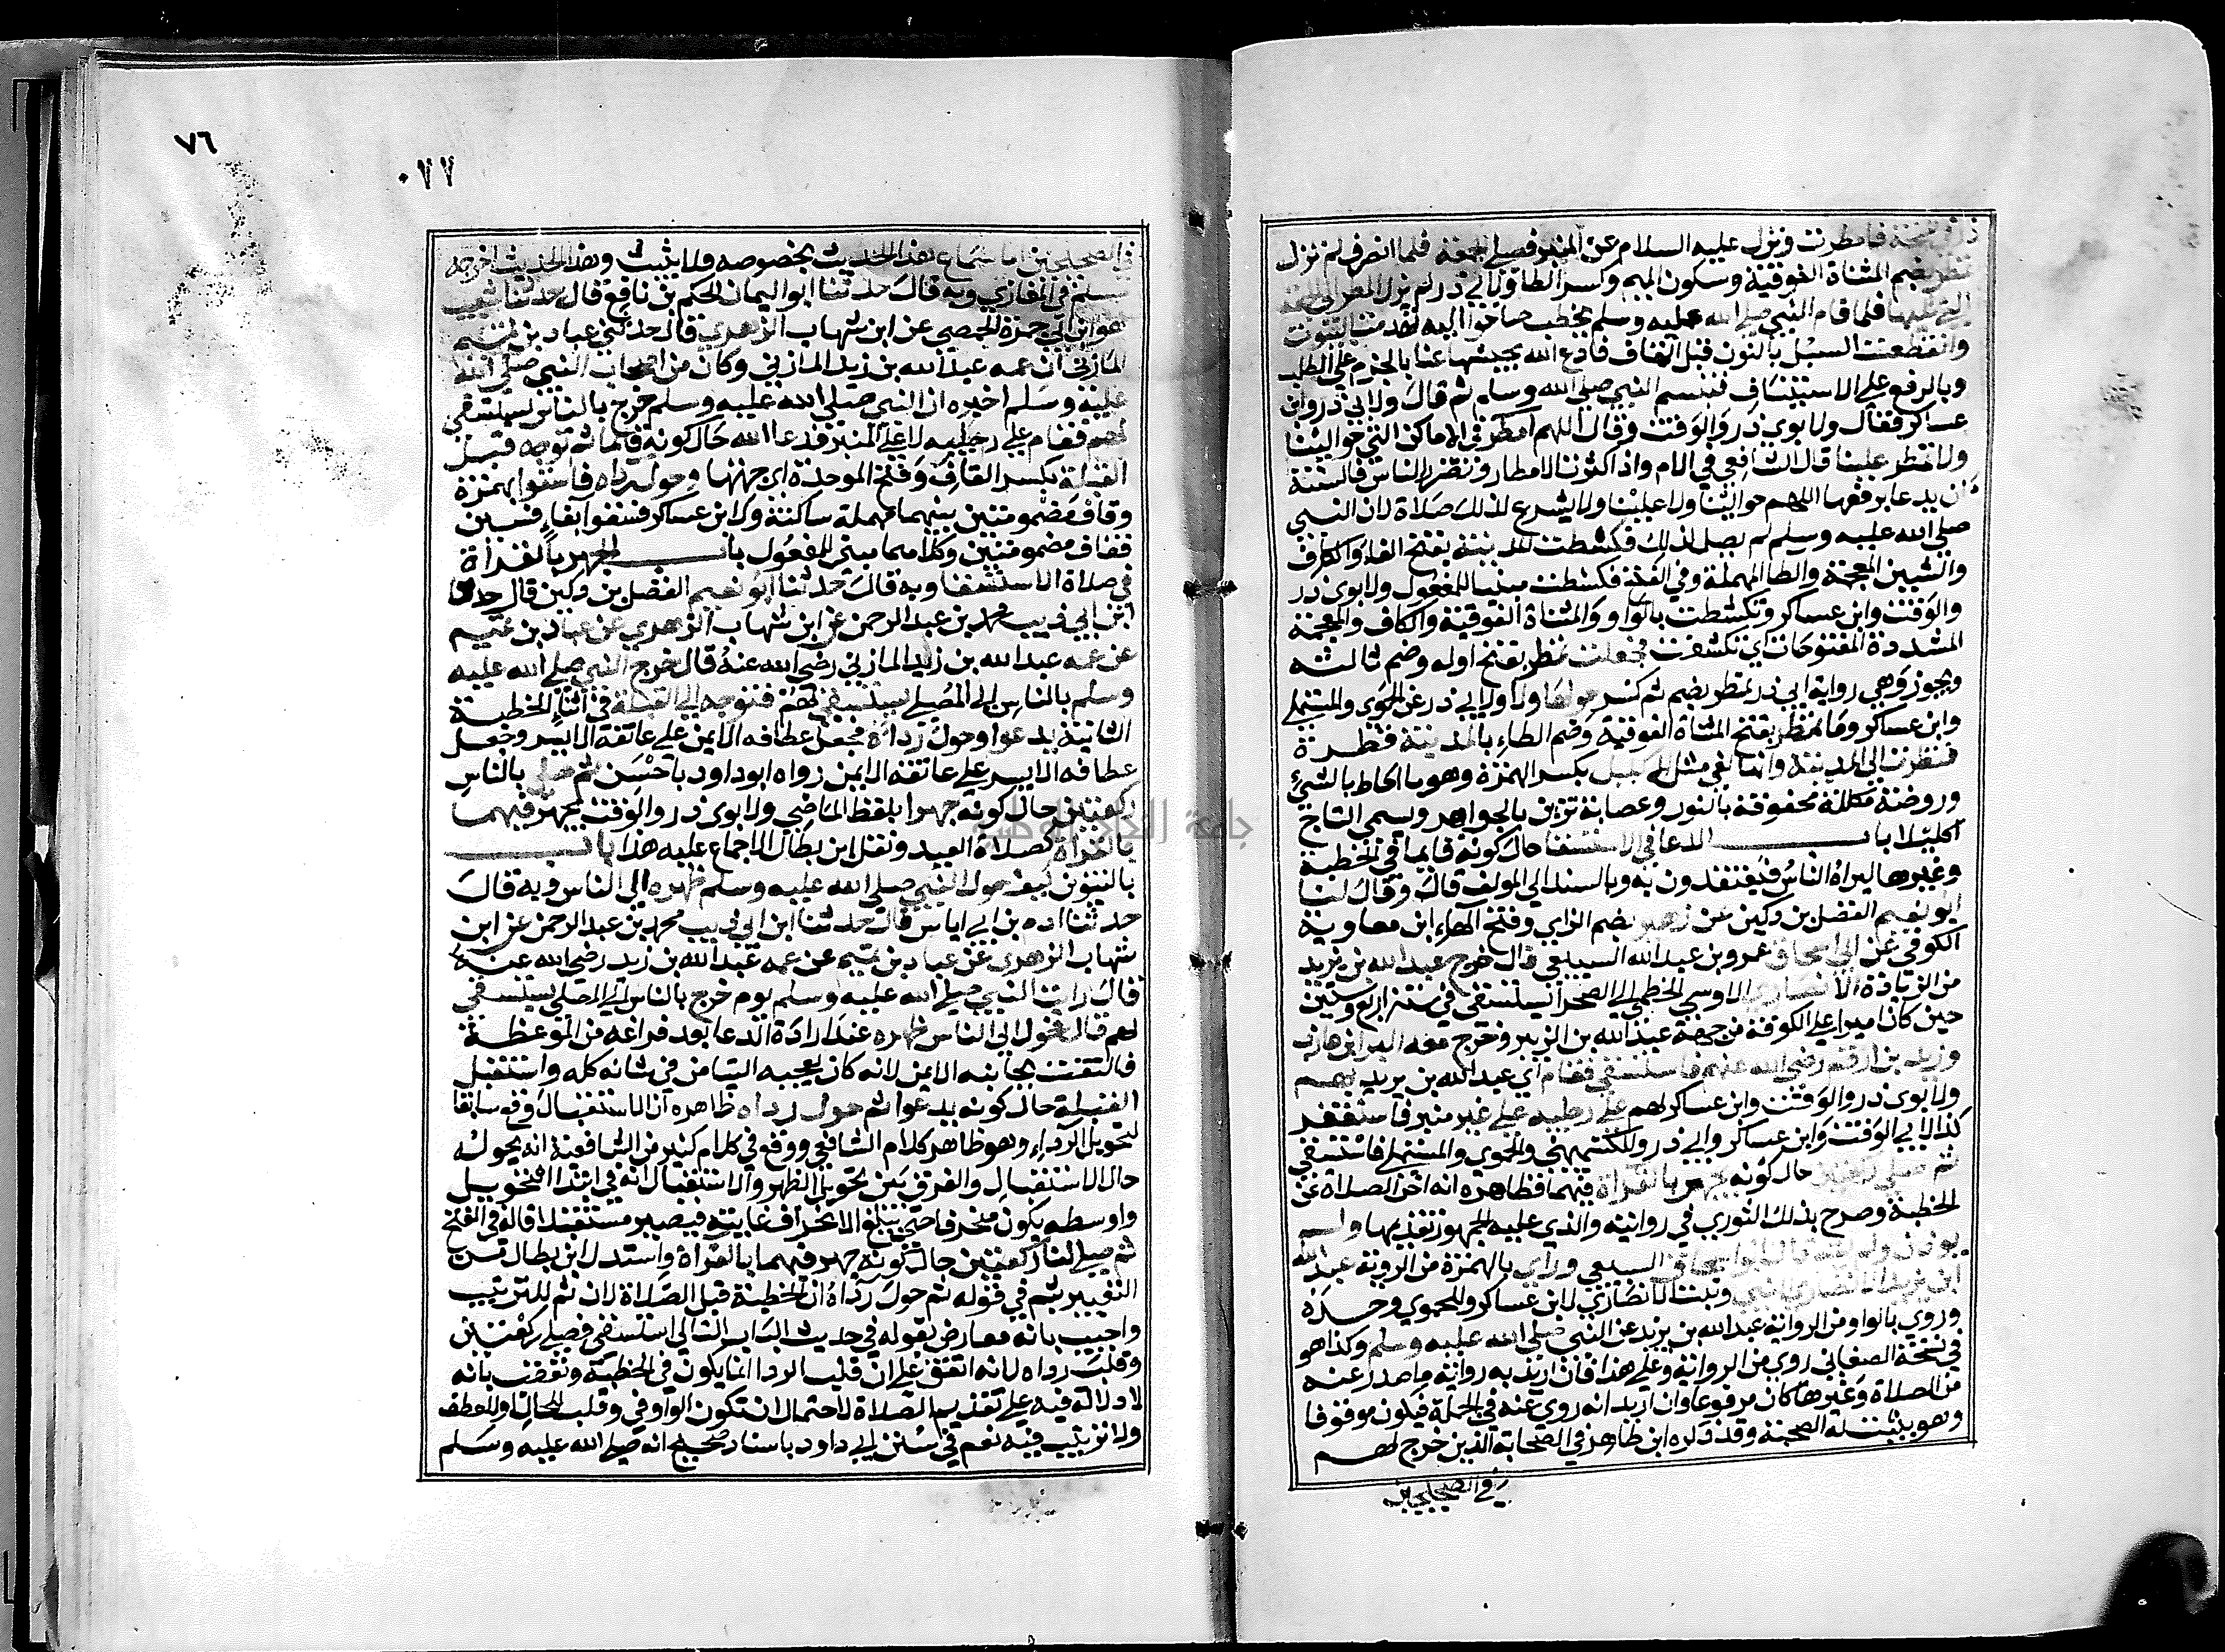 فامطرت ونزل عليه السلام عن المنبر فصلى الجمعة فلما انصرف لم تزل
تمطر بضم المثناة الفوقية وسكون الميم وكسر الطا ولابي ذر لم يزل المطر الى الجمعة
التي تليها فلما قام النبي صلى الله عليه وسلم يخطب صاحوا اليه تهدمت البيوت
وانقطعت السبل بالنون قبل القاف فادع الله يحبسها عنا بالجزم على الطلب
وبالرفع على الاستيناف فتبسم النبي صلى الله وسلم ثم قال ولابي ذر وابن
عساكر فقال ولابوي ذر والوقت وقال اللهم امطر في الاماكن التي حوالينا
ولا تمطر علينا قال الشافعي في الام واذا كثرت الامطار وتضرر الناس فالسنة
ان يدعا برفعها اللهم حوالينا ولا علينا ولا يشرع لذلك صلاة لان النبي
صلى الله عليه وسلم لم يصل لذلك فكشطت المدينة بفتح الفا والكاف
والشين المعجمة والطا المهملة وفي الفتح فكشطت مبنيا للمفعول ولابوي ذر
والوقت وابن عساكر وتكشطت بالواو والمثناة الفوقية والكاف والمعجمة
المشددة المفتوحات اي تكشفت فجعلت تمطر بفتح اوله وضم ثالثه
ويجوز وهي رواية ابي ذر تمطر بضم ثم كسر حولها ولا ولابي ذر عن الحموي والمستملي
وابن عساكر وما تمطر بفتح المثناة الفوقية وضم الطاء بالمدينة قطرة
فنظرت الى المدينة وانها لفي مثل الاكليل بكسر الهمزة وهو ما احاط بالشيء
وروضة مكللة محفوفة بالنور وعصابة تزين بالجواهر ويسمى التاج
اكليلا باب الدعا في الاستسقا حال كونه قايما في الخطبة
وغيرها ليراه الناس فيقتدون به وبالسند الى المولف قال وقال لنا
ابو نعيم الفضل بن دكين عن زهير بضم الزاي وفتح الهاء ابن معاوية
الكوفي عن ابي اسحاق عمرو بن عبد الله السبيعي قال خرج عبد الله بن يزيد
من الزيادة الانصاري الاوسي الخطمي الى الصحرا يستسقي في سنة اربع وستين
حين كان اميرا على الكوفة من جهة عبد الله بن الزبير وخرج معه البرا بن عازب
وزيد بن ارقم رضي الله عنهم فاستسقى فقام اي عبد الله بن يزيد بهم
ولابوي ذر والوقت وابن عساكر لهم على رجليه على غير منبر فاستغفر
كذا لابي الوقت وابن عساكر وابي ذر وللكشميهني والحموي والمستملي فاستسقى
ثم صلى ركعتين حال كونه يجهر بالقراة فيهما فظاهره انه اخر الصلاة عن
الخطبة وصرح بذلك الثوري في روايته والذي عليه الجمهور تقديمها ولم
يوذن ولم يقم قال ابو اسحاق السبيعي وراى بالهمزة من الروية عبد الله
ابن يزيد الانصاري النبي وثبت الانصاري لابن عساكر والحموي وحده
وروي بالواو من الرواية عبد الله بن يزيد عن النبي صلى الله عليه وسلم وكذا هو
في نسخة الصغاني روى من الرواية وعلى هذا فان اريد به رواية ما صدر عنه
من الصلاة وغيرها كان مرفوعا وان اريد انه روى عنه في الجملة فيكون موقوفا
وهو يثبت له الصحبة وقد ذكره ابن طاهر في الصحابة الذين خرج لهم
في الصحيحين
٧٦
٠٧٧
في الصحيحين اما سماع هذا الحديث بخصوصه فلا يثبت وهذا الحديث اخرجه
مسلم في المغازي وبه قال حدثنا ابو اليمان الحكم بن نافع قال حدثنا شعيب
هو ابن ابي حمزة الحمصي عن ابن شهاب الزهري قال حدثني عباد بن تميم
المازني ان عمه عبد الله بن زيد المازني وكان من اصحاب النبي صلى الله
عليه وسلم اخبره ان النبي صلى الله عليه وسلم خرج بالناس يستسقي
لهم فقام على رجليه لا على المنبر فدعا الله حال كونه قايما ثم توجه قبل
القبلة بكسر القاف وفتح الموحدة اي جهتها وحول رداه فاسقوا بهمزة
وقاف مضمومتين بينهما مهملة ساكنة ولابن عساكر فسقوا بفاء فسين
فقاف مضمومتين وكلاهما مبني للمفعول باب الجهر بالقراة
في صلاة الاستسقا وبه قال حدثنا ابو نعيم الفضل بن دكين قال حدثنا
ابن ابي ذيب محمد بن عبد الرحمن عن ابن شهاب الزهري عن عباد بن تميم
عن عمه عبد الله بن زيد المازني رضي الله عنه قال خرج النبي صلى الله عليه
وسلم بالناس الى المصلى يستسقي لهم فتوجه الى القبلة في اثنا الخطبة
الثانية يدعوا وحول رداه فجعل عطافه الايمن على عاتقه الايسر وجعل
عطافه الايسر على عاتقه الايمن رواه ابو داود باحسن ثم صلى بالناس
ركعتين حال كونه جهرا بلفظ الماضي ولابوي ذر والوقت يجهر فيهما
بالقراة كصلاة العيد ونقل ابن بطال الاجماع عليه هذا باب
بالتنوين كيف حول النبي صلى الله عليه وسلم ظهره الى الناس وبه قال
حدثنا ادم بن ابي اياس قال حدثنا ابن ابي ذيب محمد بن عبد الرحمن عن ابن
شهاب الزهري عن عباد بن تميم عن عمه عبد الله بن زيد رضي الله عنه
قال رايت النبي صلى الله عليه وسلم يوم خرج بالناس الى المصلى يستسقي
لهم قال فحول الى الناس ظهره عند ارادة الدعا بعد فراغه من الموعظة
فالتفت بجانبه الايمن لانه كان يعجبه التيامن في شانه كله واستقبل
القبلة حال كونه يدعوا ثم حول رداه ظاهره ان الاستقبال وقع سابقا
لتحويل الرداء وهو ظاهر كلام الشافعي ووقع في كلام كثير من الشافعية انه يحوله
حال الاستقبال والفرق بين تحويل الظهر والاستقبال انه في ابتدا التحويل
واوسطه يكون منحرفا حتى يبلغ الانحراف غايته فيصير مستقبلا قاله في الفتح
ثم صلى لنا ركعتين حال كونه جهر فيهما بالقراة واستدل ابن بطال من
التعبير بثم في قوله ثم حول رداه ان الخطبة قبل الصلاة لان ثم للترتيب
واجيب بانه معارض بقوله في حديث الباب التالي استسقى فصلى ركعتين
وقلب رداه لانه اتفق على ان قلب الردا انما يكون في الخطبة وتعقب بانه
لا دلالة فيه على تقديم الصلاة لاحتمال ان تكون الواو في وقلب للحال او للعطف
ولا ترتيب فيه نعم في سنن ابي داود باسناد صحيح انه صلى الله عليه وسلم